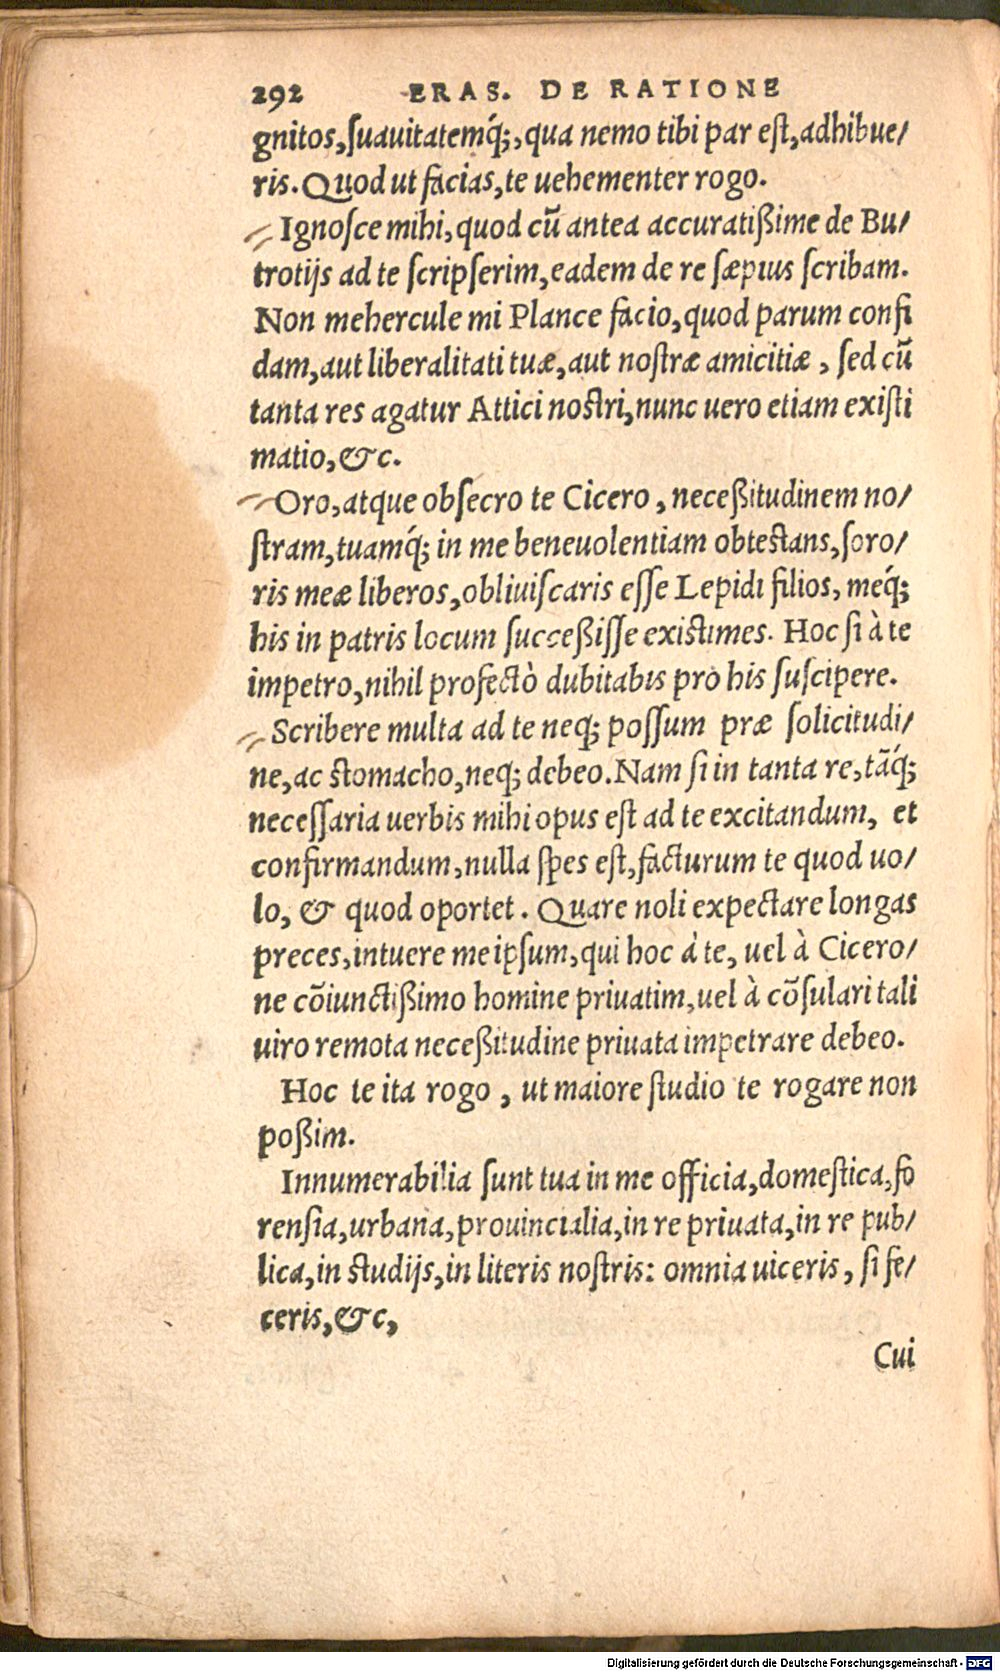 292 ERAS. DE RATIONE
gnitos,ſuauitatemq́;,qua nemo tibi par eſt,adhibue/
ris.Quod ut facias,te uehementer rogo.
Ignoſce mihi,quod cū antea accuratißime de Bu/
trotijs ad te ſcripſerim,eadem de re ſæpius ſcribam.
Non mehercule mi Plance facio,quod parum confi
dam,aut liberalitati tuæ,aut noſtræ amicitiæ , ſed cū
tanta res agatur Attici noſtri,nunc uero etiam exiſti
matio,&c.
Oro,atque obſecro te Cicero , neceßitudinem no/
ſtram,tuamq́; in me beneuolentiam obteſtans,ſoro/
ris meæ liberos,obliuiſcaris eſſe Lepidi filios, meq́;
his in patris locum ſucceßiſſe exiſtimes. Hoc ſi à te
impetro,nihil profectò dubitabis pro his ſuſcipere.
Scribere multa ad te neq; poſſum præ ſolicitudi/
ne,ac ſtomacho,neq; debeo.Nam ſi in tanta re,tāq́;
neceſſaria uerbis mihi opus eſt ad te excitandum, et
confirmandum,nulla ſpes eſt,facturum te quod uo/
lo, & quod oportet . Quare noli expectare longas
preces,intuere meipſum,qui hoc á te, uel à Cicero/
ne cōiunctißimo homine priuatim,uel à cōſulari tali
uiro remota neceßitudine priuata impetrare debeo.
Hoc te ita rogo , ut maiore ſtudio te rogare non
poßim.
Innumerabilia ſunt tua in me officia,domeſtica,fo
renſia,urbana,prouincialia,in re priuata,in re pub/
lica,in ſtudijs,in literis noſtris: omnia uiceris , ſi fe/
ceris,&c,
Cui
Digitalisierung gefördert durch die Deutsche Forschungsgemeinschaft - DFG